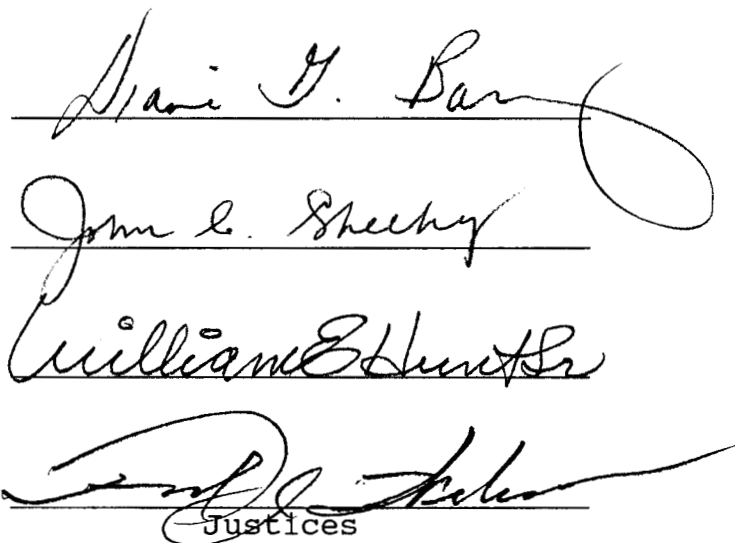 Diane G. Barz
John C. Sheehy
William E Hunt Sr
Justices